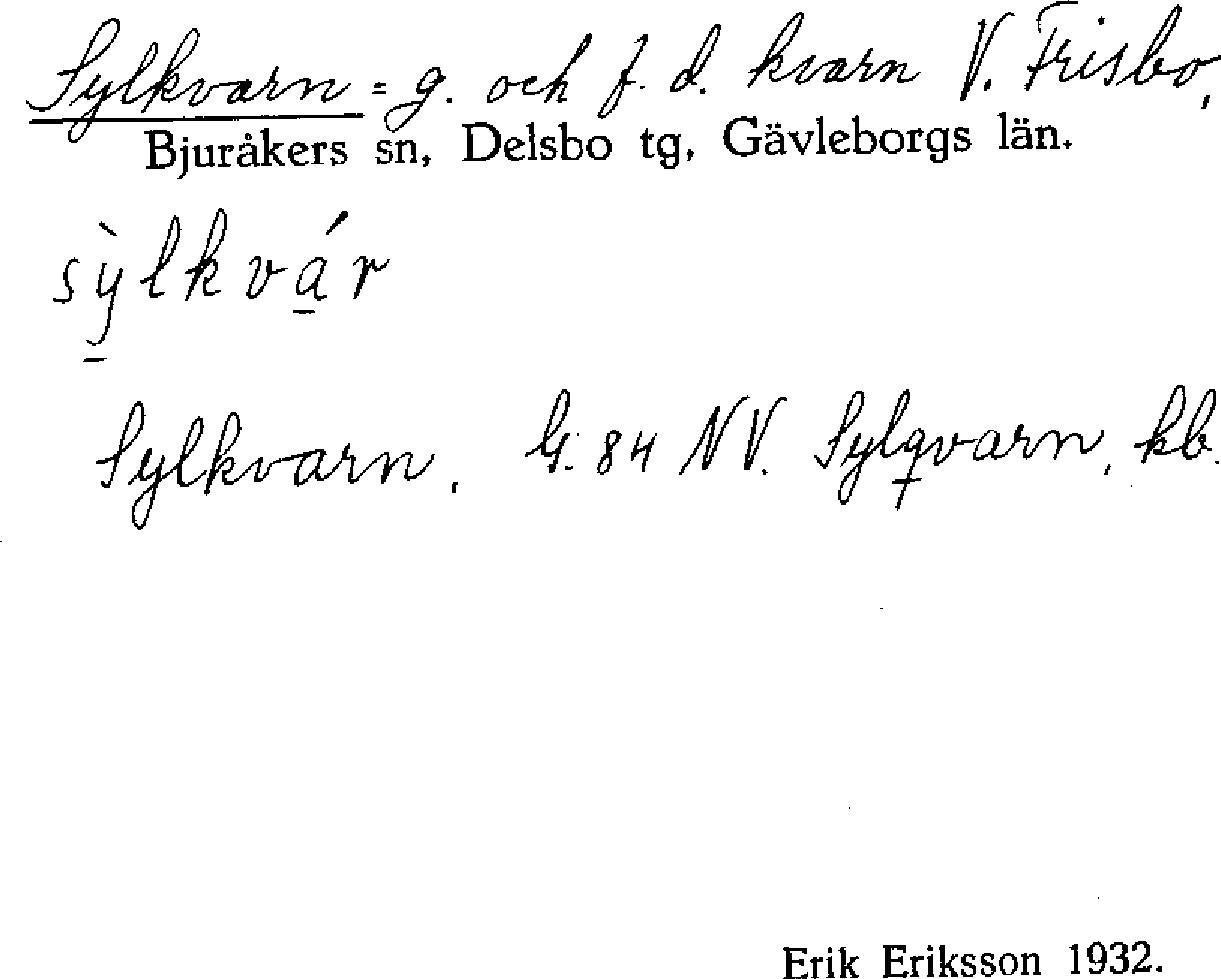 Sylkvarn = g. och f. d. kvarn V. Frisbo,
Bjuråkers sn, Delsbo tg, Gävleborgs län.
sỳ̱lkvá̱r
Sylkvarn. G. 84 NV. Sylqvarn, kb.
Erik Eriksson 1932.